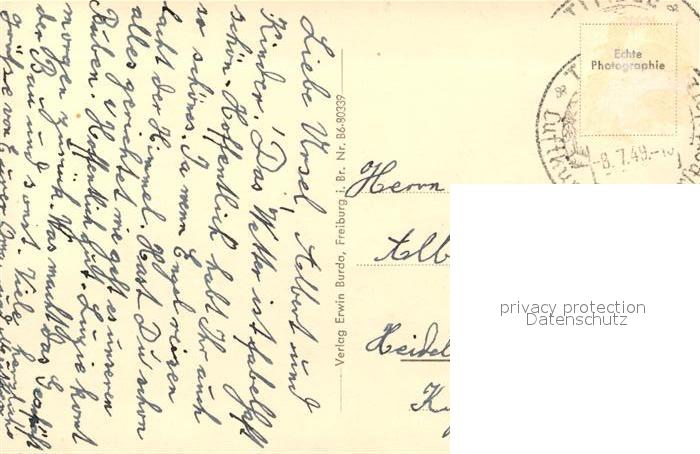 Liebe Ursel, Albert und
Kinder! Das Wetter ist fabelhaft
schön. Hoffentlich habt Ihr auch
so schönes. Ja wenn Engel reisen
lacht der Himmel. Hast Du schon
alles gerichtet wie geht es unseren
Hoffentlich gut. Luzie komt
morgen zurück. Was macht das Geschäft
der Bau und sonst. Viele herzliche
Grüße von Eurer Oma und
Verlag Erwin Burda, Freiburg i. Br. Nr. B6-80339
Echte
Photographie
TITISEE
-8.7.49.-10
Herrn
Alb
Heidel
privacy protection
Datenschutz